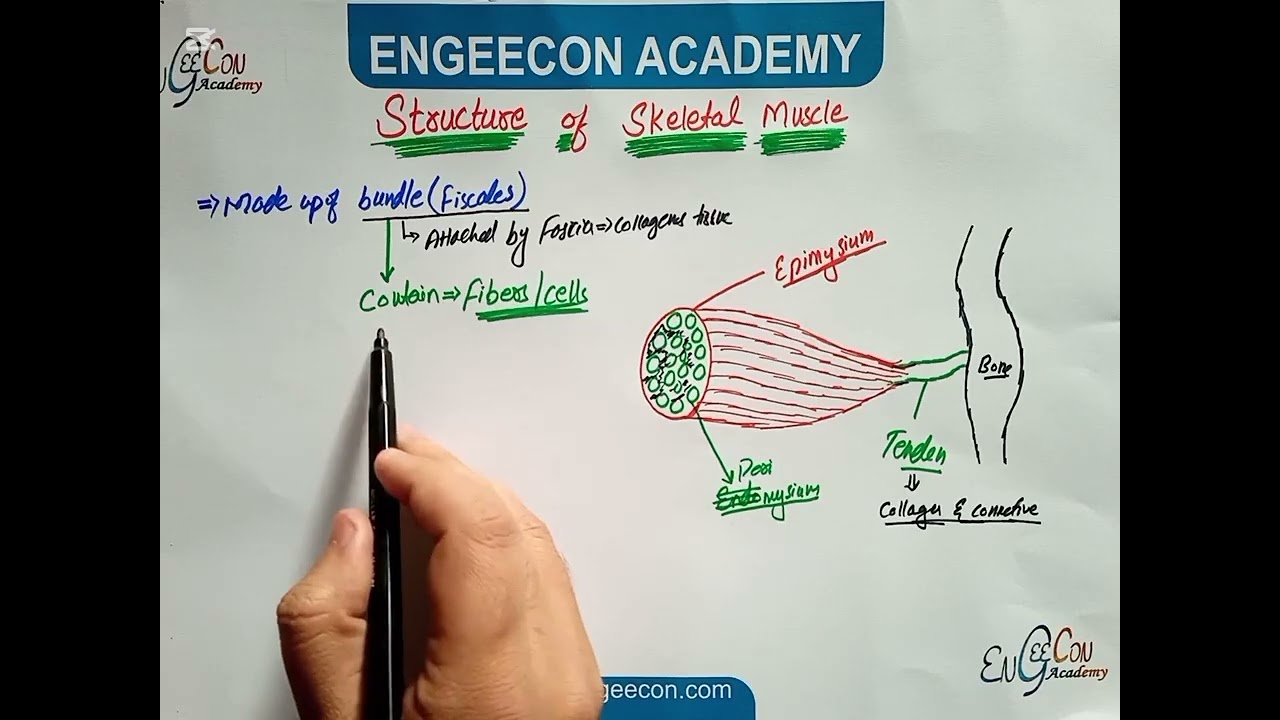 ENGEECON ACADEMY
GEECON
Academy
Structure of Skeletal Muscle
⇒ Made up of bundle (Fiscales)
↳ Attached by Fascia ⇒ collagens tissue
Contain ⇒ Fibers/cells
Epimysium
Bone
Tenden
Peri
Endomysium
⇓
Collagen & connective
ENGEECON
Academy
geecon.com